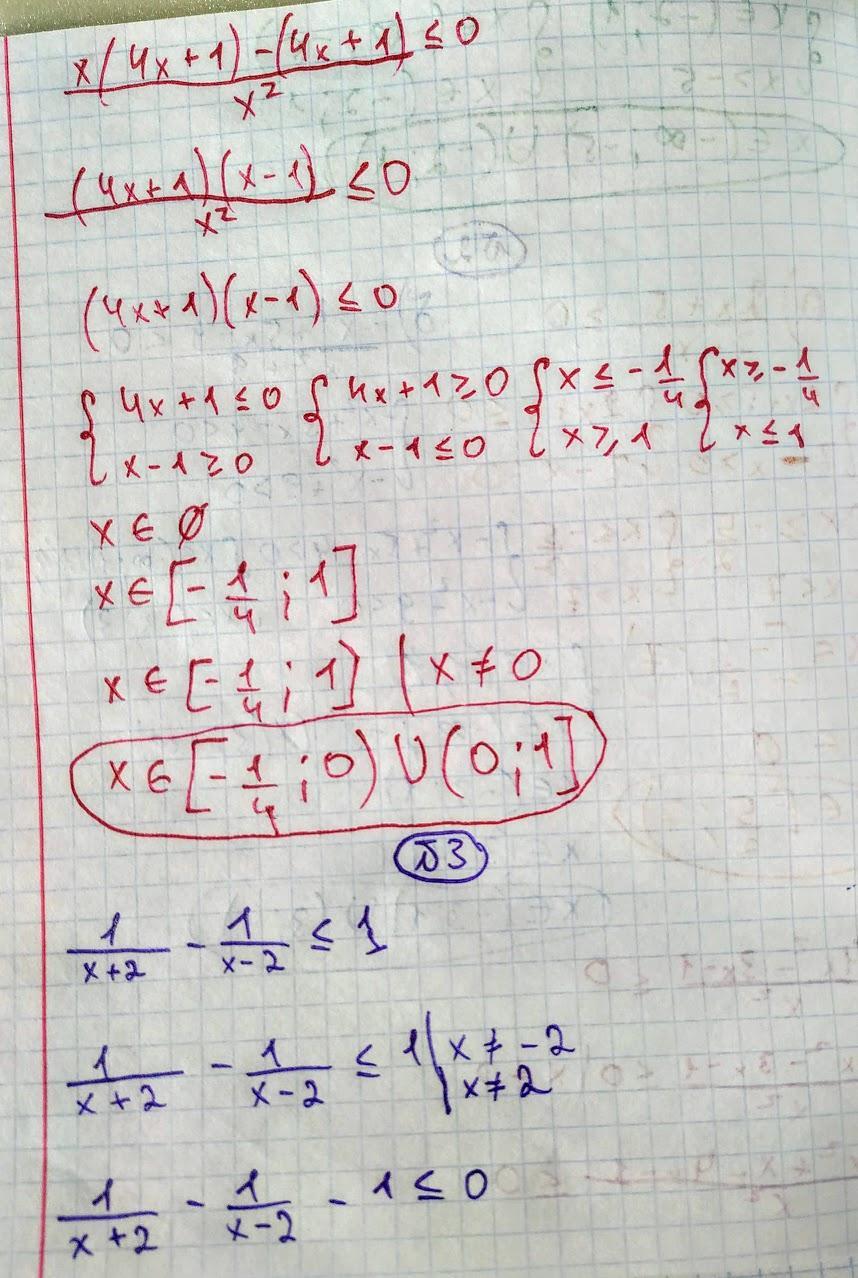 (x(4x+1)-(4x+1))/x² ≤ 0
((4x+1)(x-1))/x² ≤ 0
(4x+1)(x-1) ≤ 0
{4x+1 ≤ 0 {4x+1 ≥ 0 {x ≤ -1/4 {x ≥ -1/4
{x-1 ≥ 0 {x-1 ≤ 0 {x ≥ 1 {x ≤ 1
x ∈ Ø
x ∈ [-1/4 ; 1]
x ∈ [-1/4 ; 1] | x ≠ 0
x ∈ [-1/4 ; 0) ∪ (0 ; 1]
№3
1/(x+2) - 1/(x-2) ≤ 1
1/(x+2) - 1/(x-2) ≤ 1 | x ≠ -2
x ≠ 2
1/(x+2) - 1/(x-2) - 1 ≤ 0